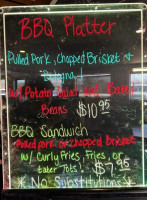 BBQ Platter
Pulled Pork, Chopped Brisket &
Bologna!
w/ Potato Salad and Baked
Beans $10.95
BBQ Sandwich
Pulled pork or chopped Brisket
w/ Curly Fries, Fries, or
tater Tots! $7.95
* No Substitutions *